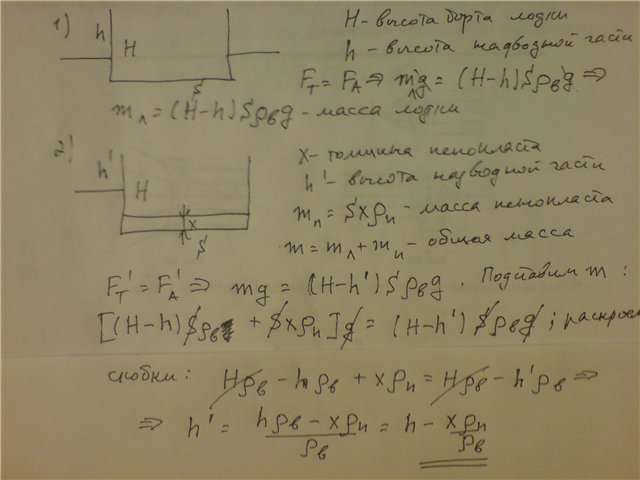 1) h H S H - высота борта лодки
h - высота надводной части
Fт = FА => mлg = (H-h)Sρвg =>
mл = (H-h)Sρвg - масса лодки
2) h' H x S x - толщина пенопласта
h' - высота надводной части
mп = Sxρп - масса пенопласта
m = mл + mп - общая масса
Fт' = FА' => mg = (H-h')Sρвg. Подставим m:
[(H-h)Sρв + Sxρп]g = (H-h')Sρвg; раскрое
скобки: Hρв - hρв + xρп = Hρв - h'ρв =>
=> h' = (hρв - xρп)/ρв = h - xρп/ρв